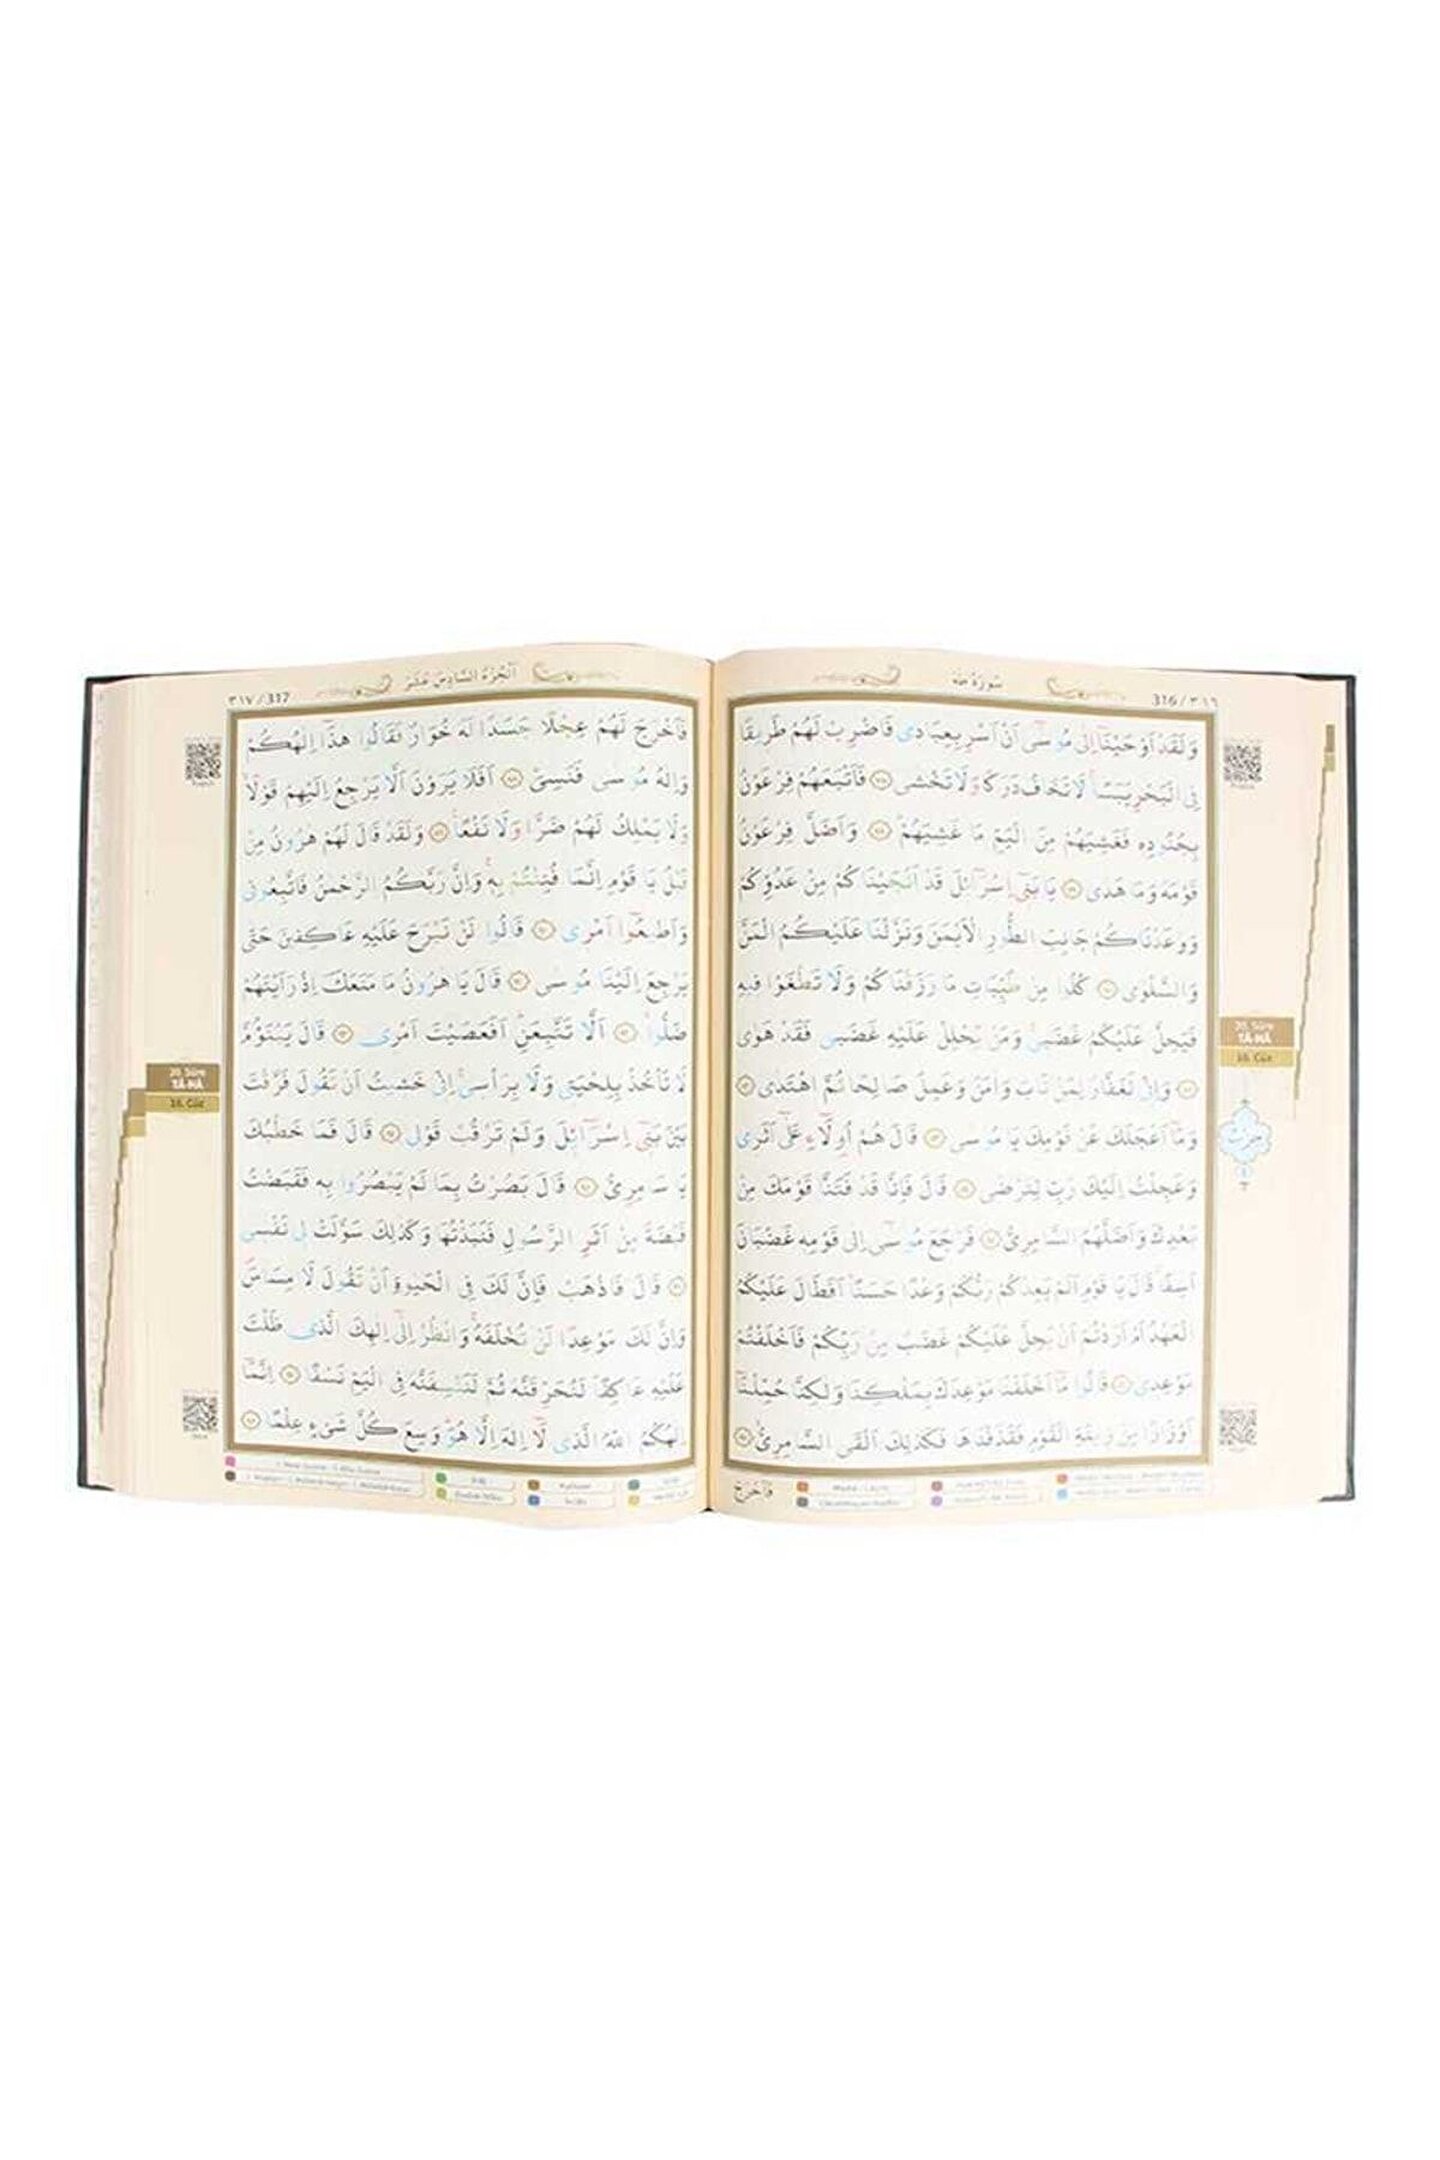 سورة طه
316 / ٣١٦
وَلَقَدْ اَوْحَيْنَٓا اِلٰى مُوسٰٓى اَنْ اَسْرِ بِعِبَاد۪ى فَاضْرِبْ لَهُمْ طَر۪يقًا
فِى الْبَحْرِ يَبَسًاۙ لَا تَخَافُ دَرَكًا وَلَا تَخْشٰى ﴿٧٧﴾ فَاَتْبَعَهُمْ فِرْعَوْنُ
بِجُنُودِه۪ فَغَشِيَهُمْ مِنَ الْيَمِّ مَا غَشِيَهُمْۜ ﴿٧٨﴾ وَاَضَلَّ فِرْعَوْنُ
قَوْمَهُ وَمَا هَدٰى ﴿٧٩﴾ يَا بَن۪ٓى اِسْرَٓائ۪لَ قَدْ اَنْجَيْنَاكُمْ مِنْ عَدُوِّكُمْ
وَوٰعَدْنَاكُمْ جَانِبَ الطُّورِ الْاَيْمَنَ وَنَزَّلْنَا عَلَيْكُمُ الْمَنَّ
وَالسَّلْوٰى ﴿٨٠﴾ كُلُوا مِنْ طَيِّبَاتِ مَا رَزَقْنَاكُمْ وَلَا تَطْغَوْا ف۪يهِ
فَيَحِلَّ عَلَيْكُمْ غَضَب۪ىۚ وَمَنْ يَحْلِلْ عَلَيْهِ غَضَب۪ى فَقَدْ هَوٰى
﴿٨١﴾ وَاِنّ۪ى لَغَفَّارٌ لِمَنْ تَابَ وَاٰمَنَ وَعَمِلَ صَالِحًا ثُمَّ اهْتَدٰى ﴿٨٢﴾
وَمَٓا اَعْجَلَكَ عَنْ قَوْمِكَ يَا مُوسٰى ﴿٨٣﴾ قَالَ هُمْ اُو۬لَٓاءِ عَلٰٓى اَثَر۪ى
وَعَجِلْتُ اِلَيْكَ رَبِّ لِتَرْضٰى ﴿٨٤﴾ قَالَ فَاِنَّا قَدْ فَتَنَّا قَوْمَكَ مِنْ
بَعْدِكَ وَاَضَلَّهُمُ السَّامِرِىُّ ﴿٨٥﴾ فَرَجَعَ مُوسٰٓى اِلٰى قَوْمِه۪ غَضْبَانَ
اَسِفًاۚ قَالَ يَا قَوْمِ اَلَمْ يَعِدْكُمْ رَبُّكُمْ وَعْدًا حَسَنًاۜ اَفَطَالَ عَلَيْكُمُ
الْعَهْدُ اَمْ اَرَدْتُمْ اَنْ يَحِلَّ عَلَيْكُمْ غَضَبٌ مِنْ رَبِّكُمْ فَاَخْلَفْتُمْ
مَوْعِد۪ى ﴿٨٦﴾ قَالُوا مَٓا اَخْلَفْنَا مَوْعِدَكَ بِمَلْكِنَا وَلٰكِنَّا حُمِّلْنَٓا
اَوْزَارًا مِنْ ز۪ينَةِ الْقَوْمِ فَقَذَفْنَاهَا فَكَذٰلِكَ اَلْقَى السَّامِرِىُّۙ ﴿٨٧﴾
فَاَخْرَجَ
20. Sûre
TÂ-HÂ
16. Cüz
حزب
اَلْجُزْءُ السَّادِسَ عَشَرَ
٣١٧ / 317
فَاَخْرَجَ لَهُمْ عِجْلًا جَسَدًا لَهُ خُوَارٌ فَقَالُوا هٰذَٓا اِلٰهُكُمْ
وَاِلٰهُ مُوسٰى فَنَسِىَۜ ﴿٨٨﴾ اَفَلَا يَرَوْنَ اَلَّا يَرْجِعُ اِلَيْهِمْ قَوْلًاۙ
وَلَا يَمْلِكُ لَهُمْ ضَرًّا وَلَا نَفْعًا۟ ﴿٨٩﴾ وَلَقَدْ قَالَ لَهُمْ هٰرُونُ مِنْ
قَبْلُ يَا قَوْمِ اِنَّمَا فُتِنْتُمْ بِه۪ۚ وَاِنَّ رَبَّكُمُ الرَّحْمٰنُ فَاتَّبِعُون۪ى
وَاَط۪يعُٓوا اَمْر۪ى ﴿٩٠﴾ قَالُوا لَنْ نَبْرَحَ عَلَيْهِ عَاكِف۪ينَ حَتّٰى
يَرْجِعَ اِلَيْنَا مُوسٰى ﴿٩١﴾ قَالَ يَا هٰرُونُ مَا مَنَعَكَ اِذْ رَاَيْتَهُمْ
ضَلُّٓواۙ ﴿٩٢﴾ اَلَّا تَتَّبِعَنِۜ اَفَعَصَيْتَ اَمْر۪ى ﴿٩٣﴾ قَالَ يَبْنَؤُ۬مَّ
لَا تَأْخُذْ بِلِحْيَت۪ى وَلَا بِرَأْس۪ىۚ اِنّ۪ى خَش۪يتُ اَنْ تَقُولَ فَرَّقْتَ
بَيْنَ بَن۪ٓى اِسْرَٓائ۪لَ وَلَمْ تَرْقُبْ قَوْل۪ى ﴿٩٤﴾ قَالَ فَمَا خَطْبُكَ
يَا سَامِرِىُّ ﴿٩٥﴾ قَالَ بَصُرْتُ بِمَا لَمْ يَبْصُرُوا بِه۪ فَقَبَضْتُ
قَبْضَةً مِنْ اَثَرِ الرَّسُولِ فَنَبَذْتُهَا وَكَذٰلِكَ سَوَّلَتْ ل۪ى نَفْس۪ى
﴿٩٦﴾ قَالَ فَاذْهَبْ فَاِنَّ لَكَ فِى الْحَيٰوةِ اَنْ تَقُولَ لَا مِسَاسَۖ
وَاِنَّ لَكَ مَوْعِدًا لَنْ تُخْلَفَهُۚ وَانْظُرْ اِلٰٓى اِلٰهِكَ الَّذ۪ى ظَلْتَ
عَلَيْهِ عَاكِفًاۜ لَنُحَرِّقَنَّهُ ثُمَّ لَنَنْسِفَنَّهُ فِى الْيَمِّ نَسْفًا ﴿٩٧﴾ اِنَّمَٓا
اِلٰهُكُمُ اللّٰهُ الَّذ۪ى لَٓا اِلٰهَ اِلَّا هُوَۜ وَسِعَ كُلَّ شَىْءٍ عِلْمًا ﴿٩٨﴾
20. Sûre
TÂ-HÂ
16. Cüz